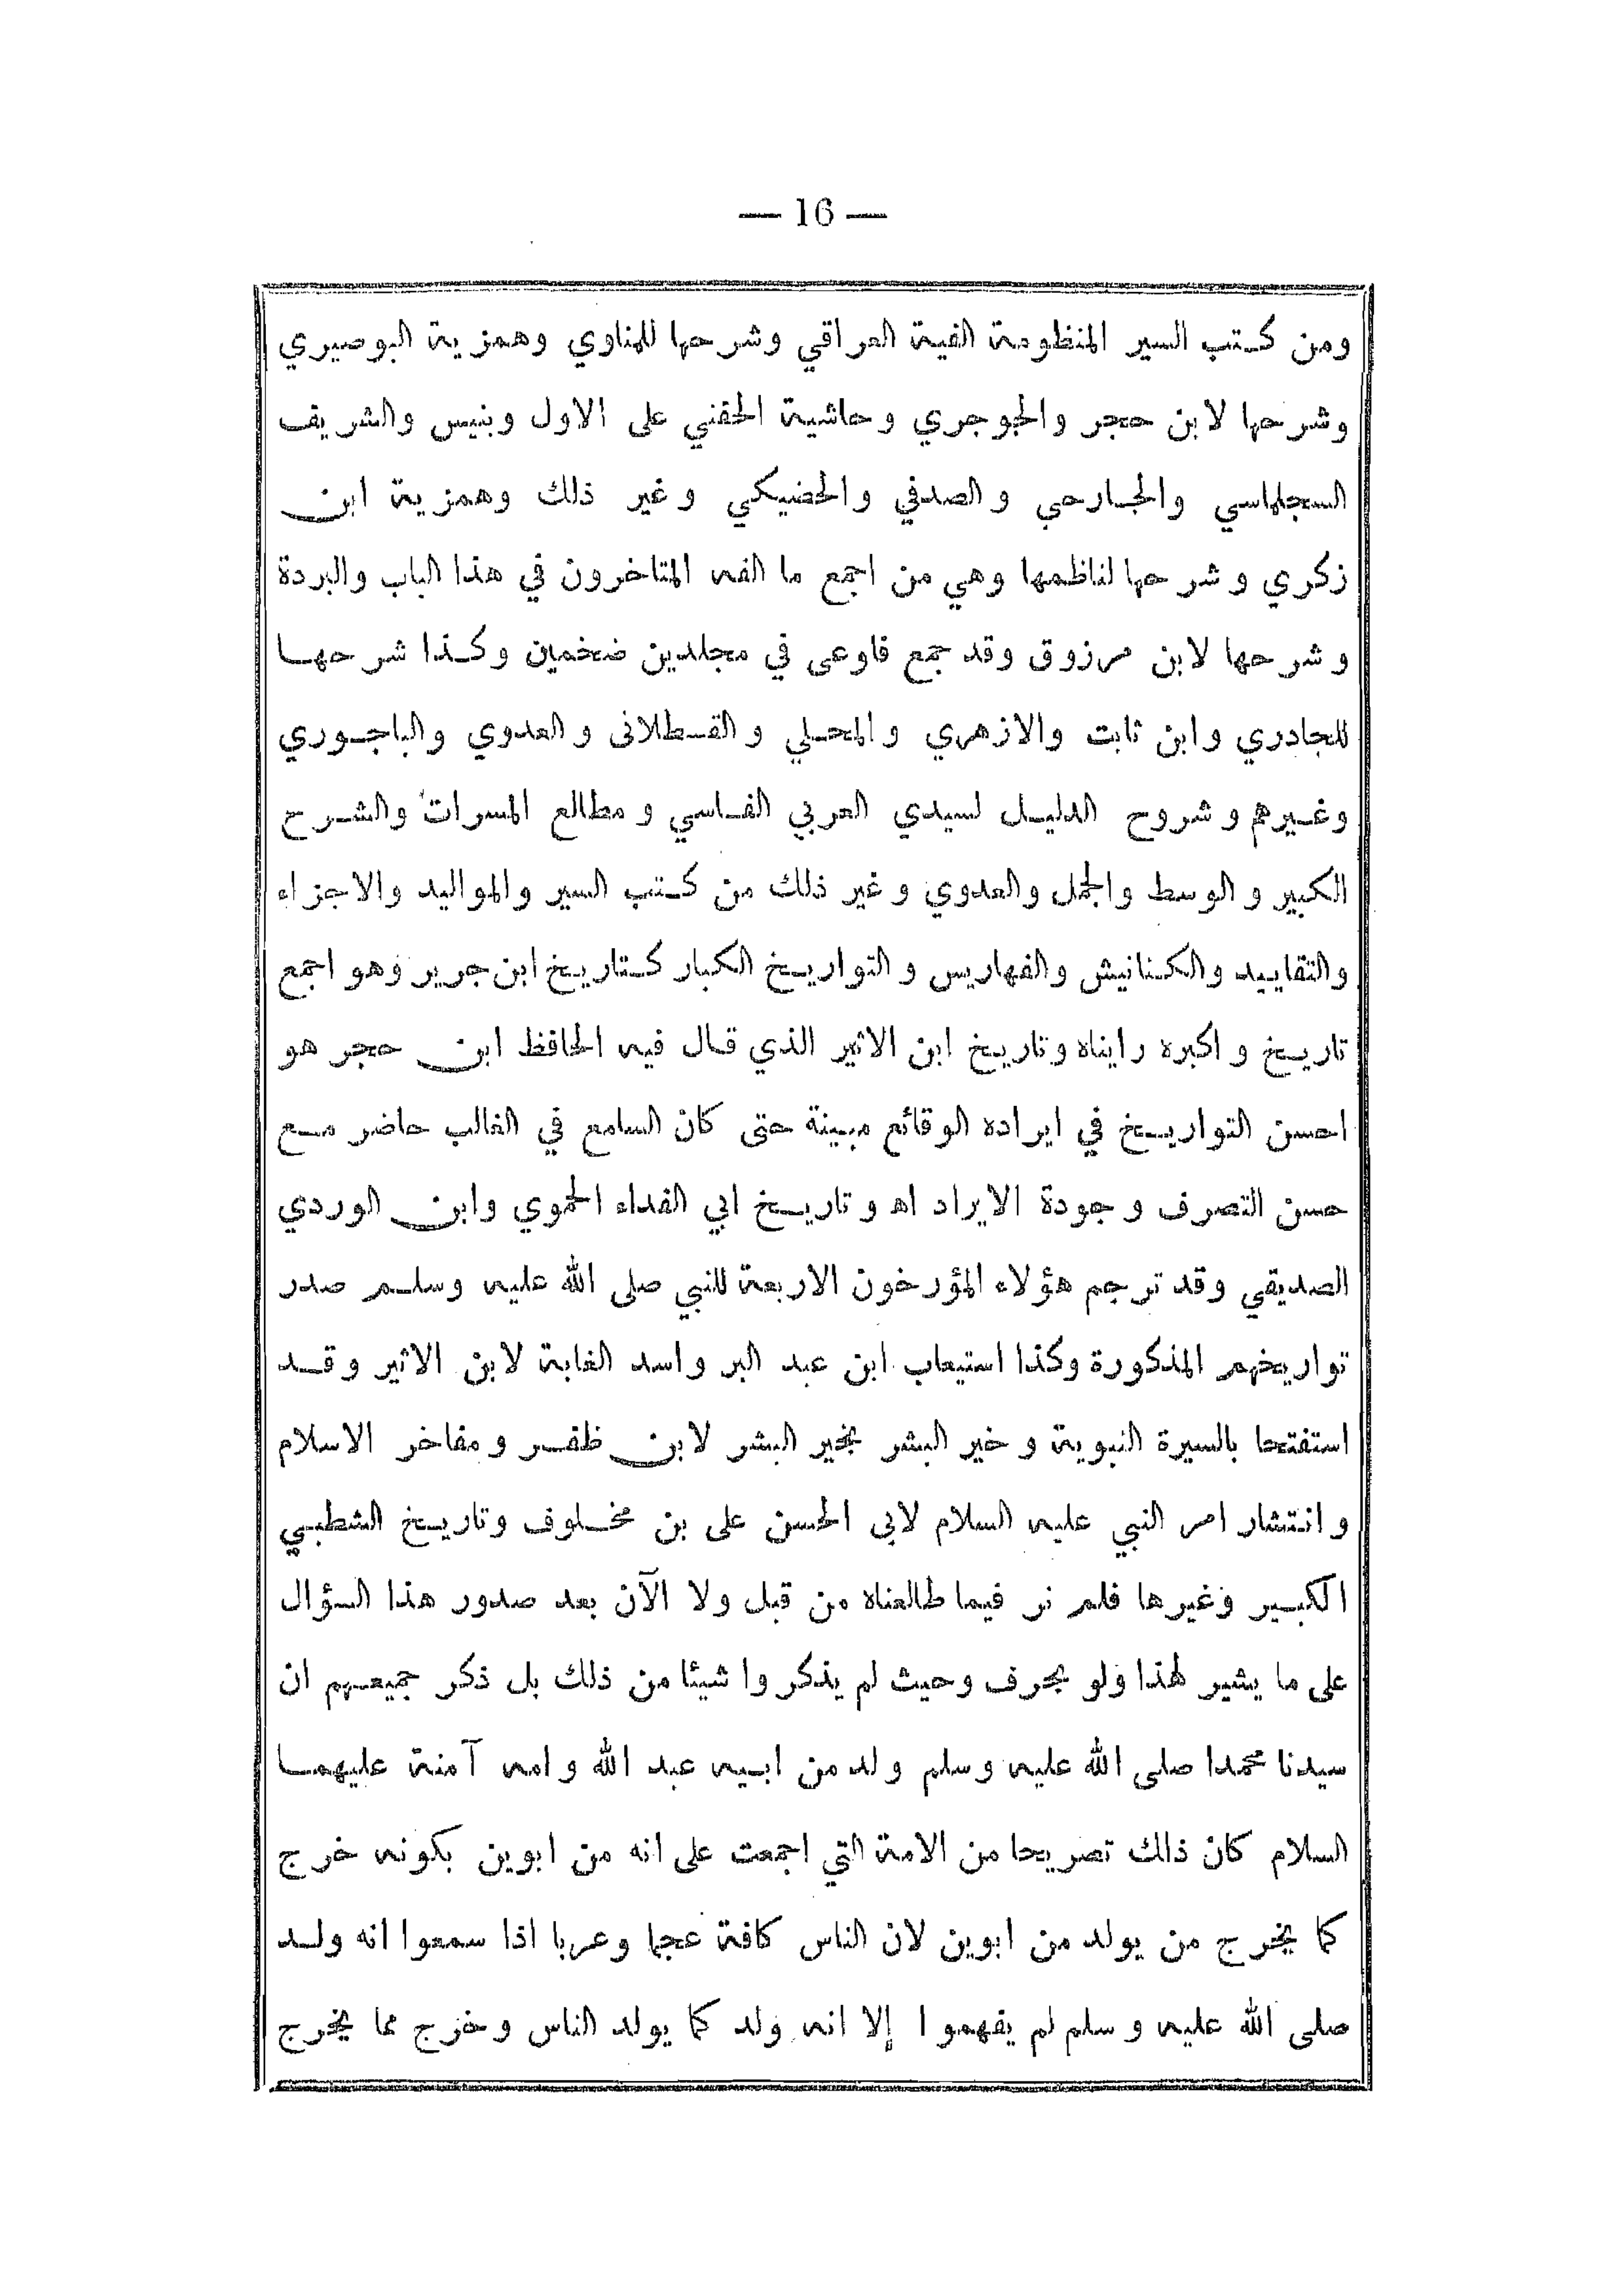 — 16 —
ومن كتب السير المنظومة الفية العراقي وشرحها للمناوي وهمزية البوصيري
وشرحها لابن حجر والجوجري وحاشية الحفني على الاول وبنيس والشريف
السجلماسي والجارحي والصدفي والحضيكي وغير ذلك وهمزية ابن
زكري وشرحها لناظمها وهي من اجمع ما الفه المتاخرون في هذا الباب والبردة
وشرحها لابن مرزوق وقد جمع فاوعى في مجلدين ضخمين وكذا شرحها
للجادري وابن ثابت والازهري والمحلي والقسطلانى والعدوي والباجوري
وغيرهم وشروح الدليل لسيدي العربي الفاسي ومطالع المسرات والشرح
الكبير والوسط والجمل والعدوي وغير ذلك من كتب السير والمواليد والاجزاء
والتقاييد والكنانيش والفهاريس والتواريخ الكبار كتاريخ ابن جرير وهو اجمع
تاريخ واكبره رايناه وتاريخ ابن الاثير الذي قال فيه الحافظ ابن حجر هو
احسن التواريخ في ايراده الوقائع مبينة حتى كان السامع في الغالب حاضر مع
حسن التصرف وجودة الايراد اه وتاريخ ابي الفداء الحموي وابن الوردي
الصديقي وقد ترجم هؤلاء المؤرخون الاربعة للنبي صلى الله عليه وسلم صدر
تواريخهم المذكورة وكذا استيعاب ابن عبد البر واسد الغابة لابن الاثير وقد
استفتحا بالسيرة النبوية وخير البشر بخير البشر لابن ظفر ومفاخر الاسلام
وانتشار امر النبي عليه السلام لابى الحسن على بن مخلوف وتاريخ الشطبي
الكبير وغيرها فلم نر فيما طالعناه من قبل ولا الآن بعد صدور هذا السؤال
على ما يشير لهذا ولو بحرف وحيث لم يذكروا شيئا من ذلك بل ذكر جميعهم ان
سيدنا محمدا صلى الله عليه وسلم ولد من ابيه عبد الله وامه آمنة عليهما
السلام كان ذلك تصريحا من الامة التي اجمعت على انه من ابوين بكونه خرج
كما يخرج من يولد من ابوين لان الناس كافة عجما وعربا اذا سمعوا انه ولد
صلى الله عليه وسلم لم يفهموا إلا انه ولد كما يولد الناس وخرج مما يخرج